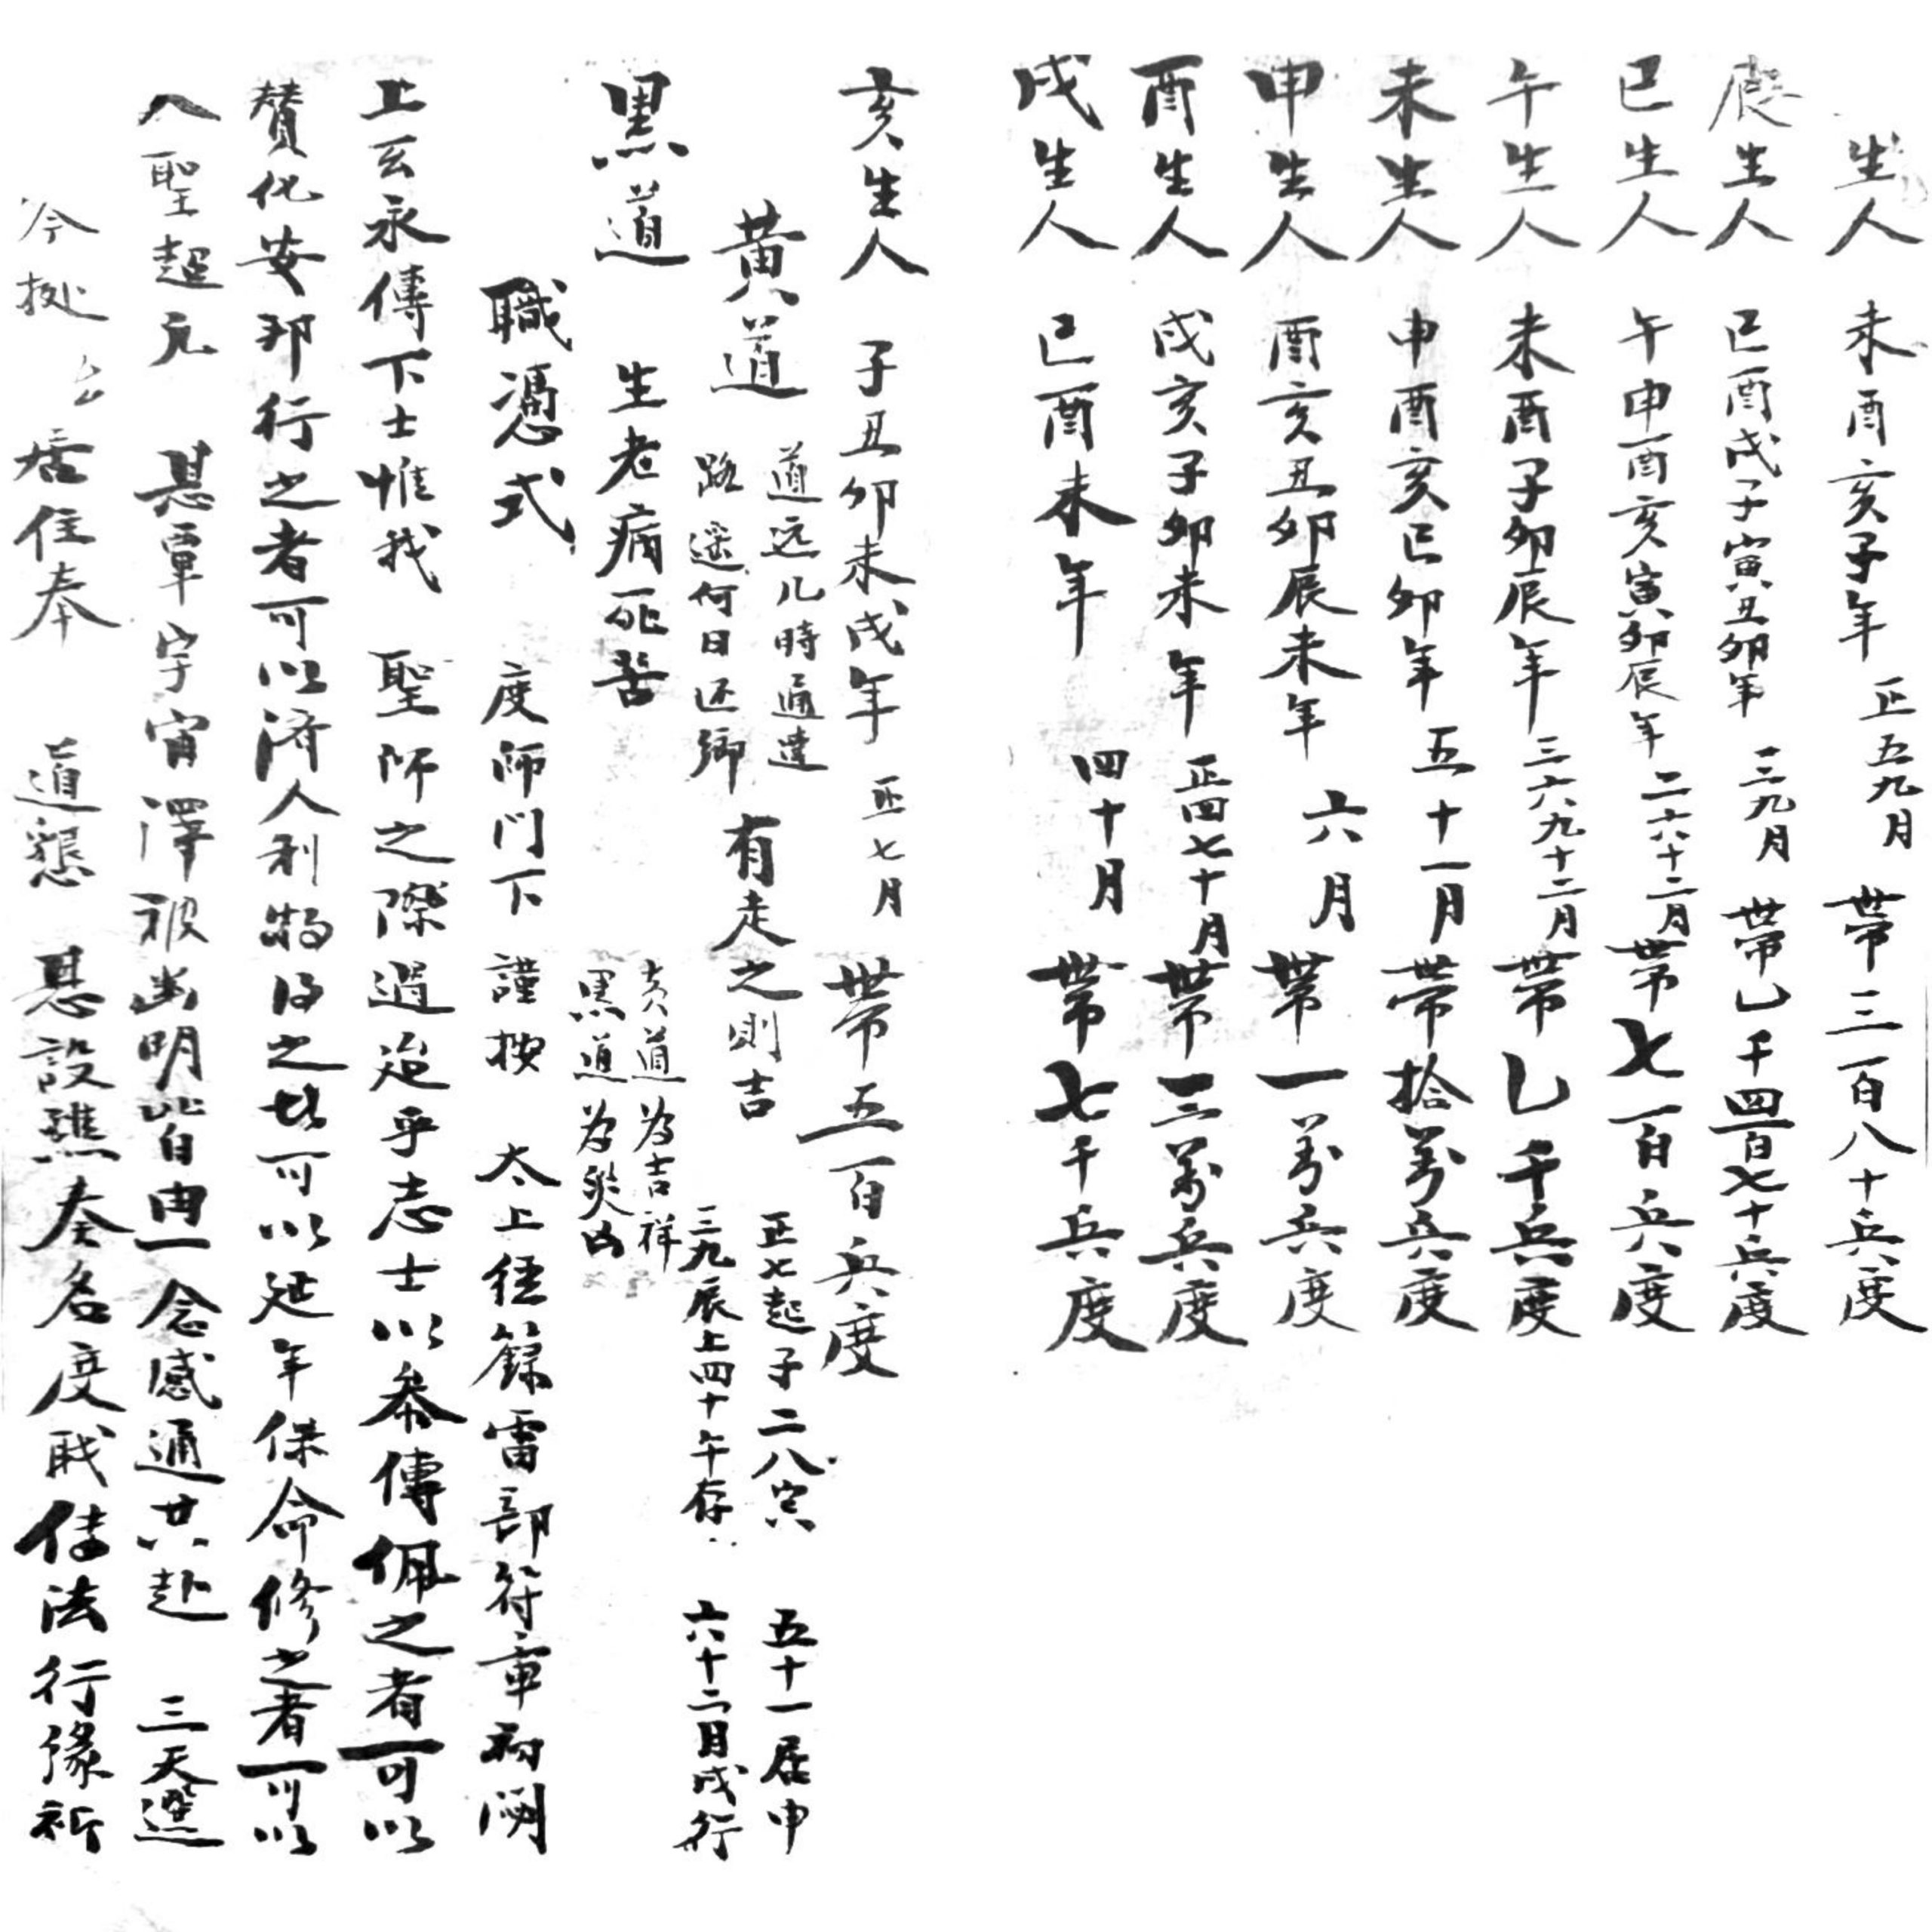 生人 未酉亥子年 正五九月 帶三百八十兵度
辰生人 巳酉戌子寅丑卯年 三九月 帶乚千四百七十兵度
巳生人 午申酉亥寅卯辰年 二六十二月 帶七百兵度
午生人 未酉子卯辰年 三六九十二月 帶乚千兵度
未生人 申酉亥巳卯年 五十一月 帶拾萬兵度
申生人 酉亥丑卯辰未年 六月 帶一萬兵度
酉生人 戌亥子卯未年 正四七十月 帶三萬兵度
戌生人 巳酉未年 四十月 帶七千兵度
亥生人 子丑卯未戌年 正七月 帶五百兵度
黄道 道远几時通達
路遥何日还鄉 有走之則吉
正七起子二八寅 五十一居申
三九辰上四十午存 六十二月戌行
黑道 生老病死苦 黄道為吉祥
黑道為災凶
職憑式 度师门下 謹按 太上徑籙雷部符章
上玄永傳下士惟我 聖师之際遇迨乎志士以叅傳佩之者可以
賛化安邦行之者可以济人利物得之 可以延年保命修之者可以
入聖超凡 恩覃宇宙澤被幽明皆由一念感通共赴 三天選
今據 厶居住奉 道懇恩設醮奏名度職传法行缘祈